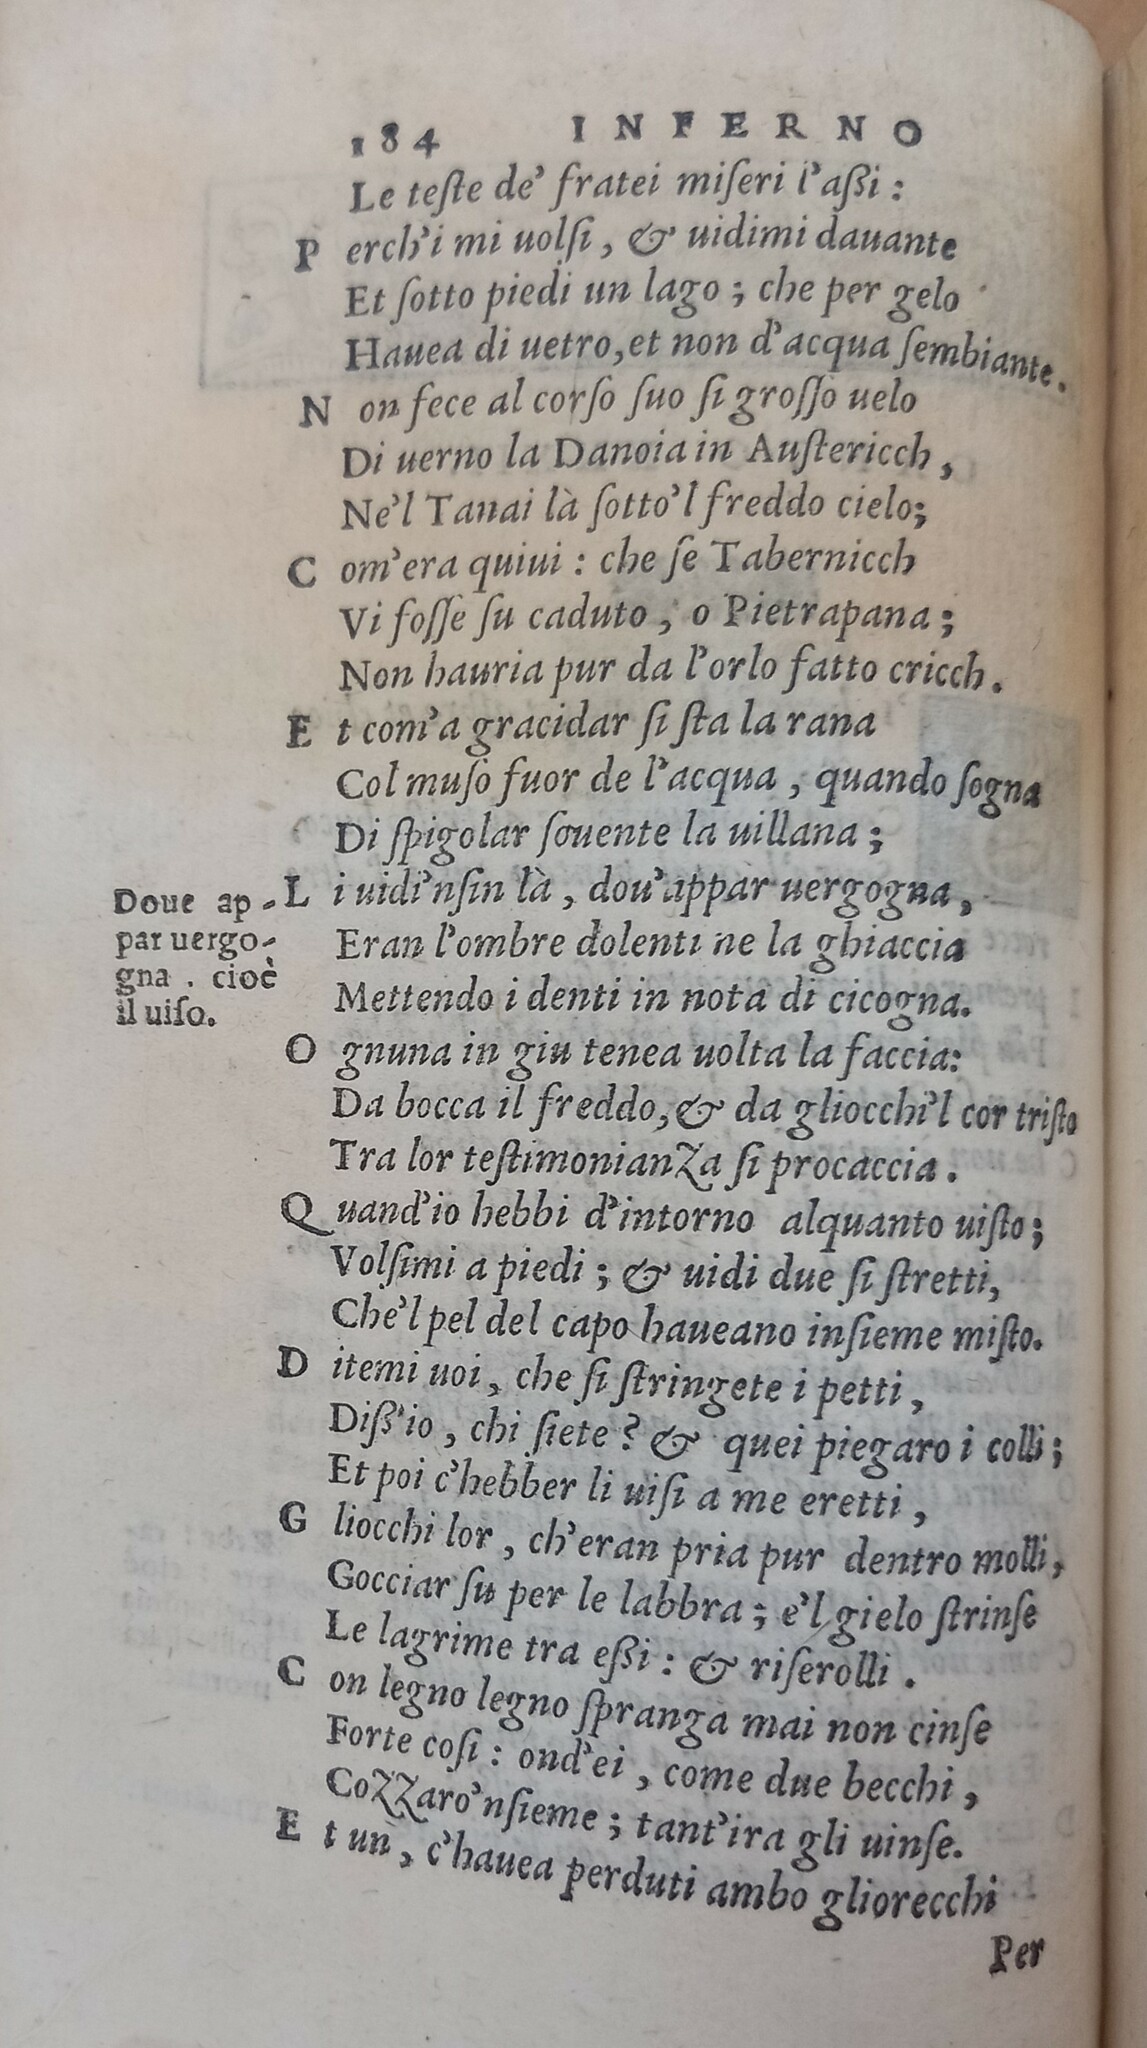 184 INFERNO
Le teſte de' fratei miſeri l'aßi:
Perch'i mi uolſi, & uidimi dauante
Et ſotto piedi un lago; che per gelo
Hauea di uetro, et non d'acqua ſembiante.
Non fece al corſo ſuo ſi groſſo uelo
Di uerno la Danoia in Auſtericch,
Ne'l Tanai là ſotto'l freddo cielo;
Com'era quiui: che ſe Tabernicch
Vi foſſe ſu caduto, o Pietrapana;
Non hauria pur da l'orlo fatto cricch.
Et com'a gracidar ſi ſta la rana
Col muſo fuor de l'acqua, quando ſogna
Di ſpigolar ſouente la uillana;
Doue ap-
par uergo-
gna. cioè
il uiſo.
Li uidi'nſin là, dou'appar uergogna,
Eran l'ombre dolenti ne la ghiaccia
Mettendo i denti in nota di cicogna.
Ognuna in giu tenea uolta la faccia:
Da bocca il freddo, & da gliocchi'l cor triſto
Tra lor teſtimonianza ſi procaccia.
Quand'io hebbi d'intorno alquanto uiſto;
Volſimi a piedi; & uidi due ſi ſtretti,
Che'l pel del capo haueano inſieme miſto.
Ditemi uoi, che ſi ſtringete i petti,
Diß'io, chi ſiete? & quei piegaro i colli;
Et poi c'hebber li uiſi a me eretti,
Gliocchi lor, ch'eran pria pur dentro molli,
Gocciar ſu per le labbra; e'l gielo ſtrinſe
Le lagrime tra eßi: & riſerolli.
Con legno legno ſpranga mai non cinſe
Forte coſi: ond'ei, come due becchi,
Cozzaro'nſieme; tant'ira gli uinſe.
Et un, c'hauea perduti ambo gliorecchi
Per